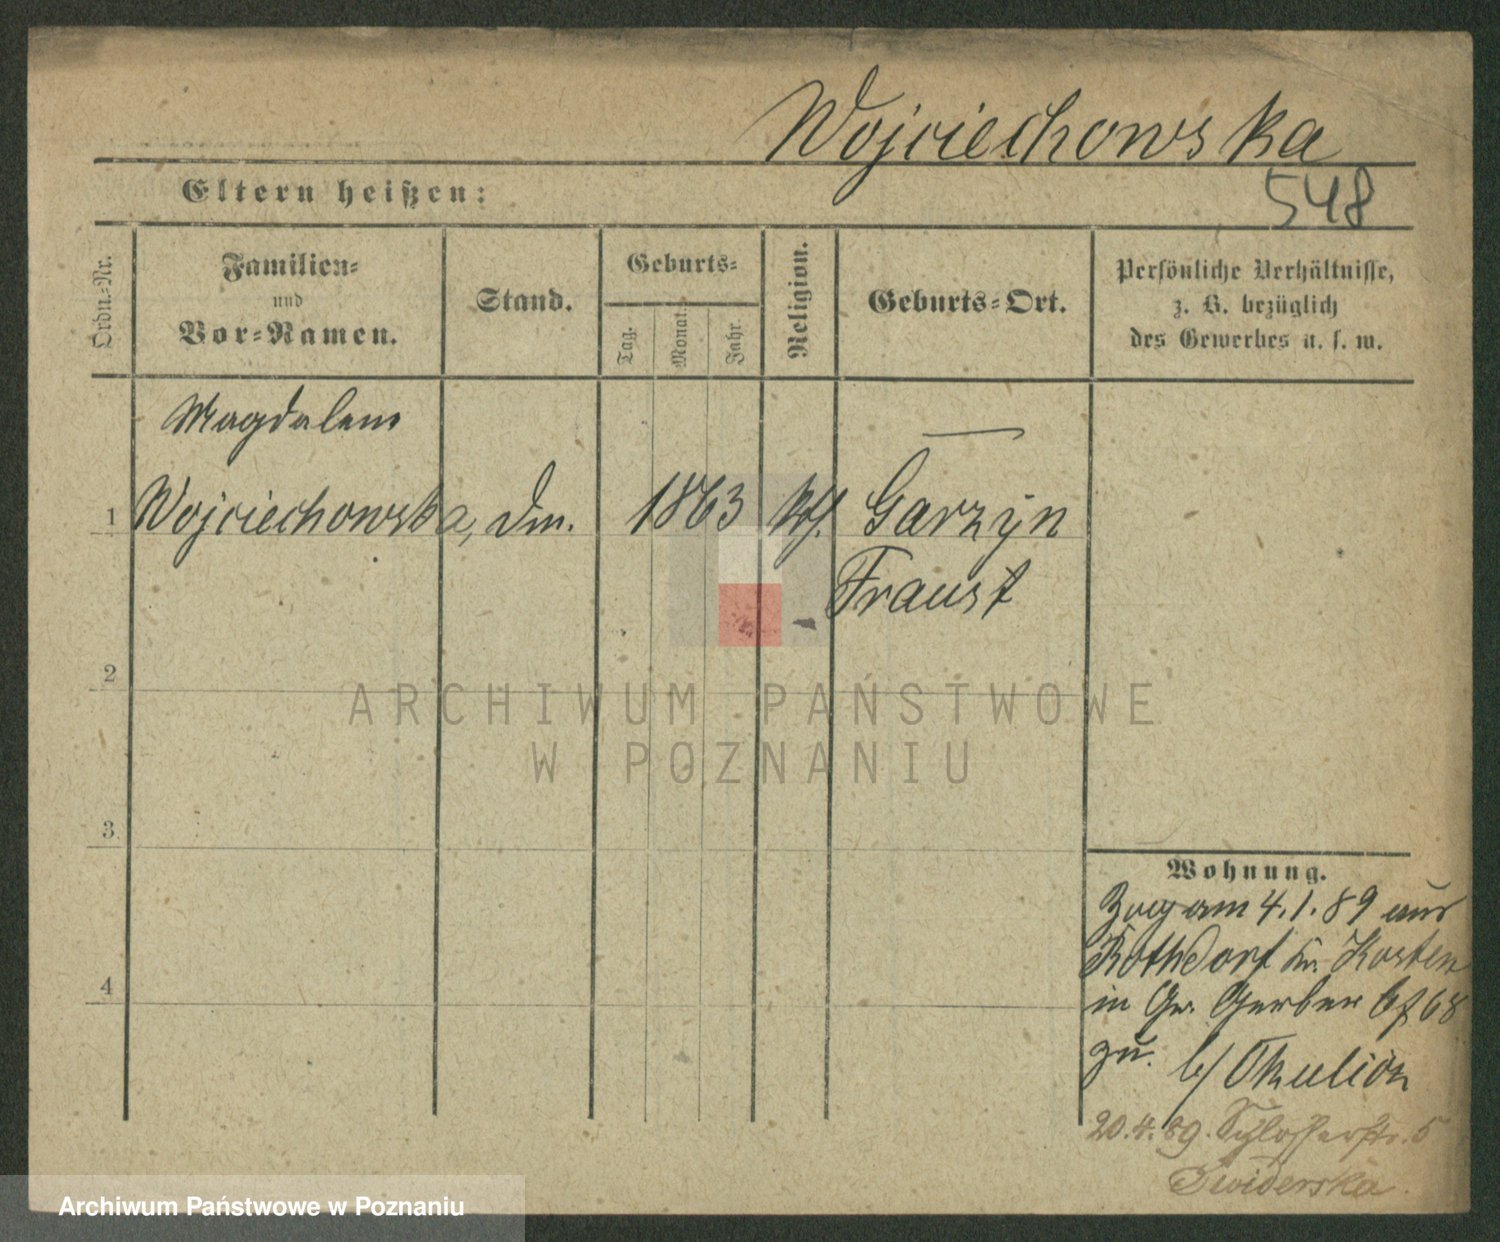 Wojciechowska
Eltern heißen:
548
Ordn.-Nr.
Familien-
und
Vor-Namen.
Stand.
Geburts-
Tag.
Monat.
Jahr.
Religion.
Geburts-Ort.
Persönliche Verhältnisse,
z. B. bezüglich
des Gewerbes u. s. w.
Magdalena
1 Wojciechowska, Dm. 1863 kth. Garzyn
Fraust
2
ARCHIWUM PAŃSTWOWE
W POZNANIU
3
4
Wohnung.
Zog am 4.1.89 aus
Rothdorf Kr. Kosten
in Gr. Gerber 68
zu. b/ Okulicz
20.4.89. Schlosserstr. 5
Swiderska.
Archiwum Państwowe w Poznaniu